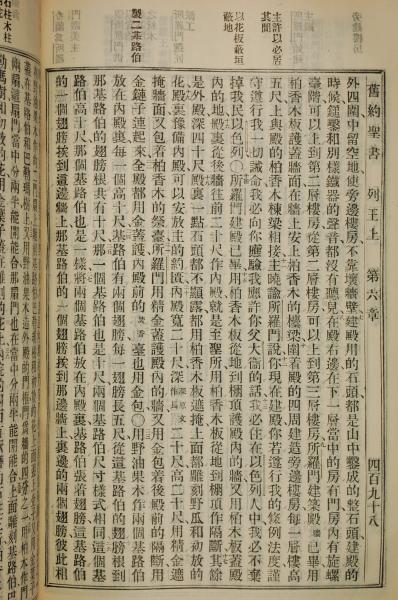 主許以必居其間
以花板蔽垣蔽地
製二基路伯
舊約聖書 列王上 第六章 四百九十八
外四圍中留空地使旁邊樓房不靠壞牆壁建殿用的石頭都是山中鑿成的整石頭建殿的
時候鎚鏨和別樣鐵器的聲音都沒有聽見在殿右邊在下一層當中的房有門房內有旋螺
臺階可以上到第二層樓房從第二層樓房可以上到第三層樓房所羅門建築殿牆已畢用
柏香木板護蓋牆面在牆上安上柏香木的棟梁圍着殿的四周建造旁邊樓房每一層樓高
五尺上與殿的柏香木棟梁相接主曉諭所羅門說你現在建殿你若遵行我的條例法度謹
守遵行我一切誡命我必向你應驗我應許你父大衛的話我必住在以色列人中我必不棄
掉我民以色列〇所羅門建殿已畢用柏香木板從地到棚頂護殿內的牆用松木板蓋殿
內的地殿裏從後牆往前二十尺作內殿就是至聖所用柏香木板從地到棚頂作隔斷其餘
是外殿深四十尺殿裏一點石頭都不顯露都用柏香木板遮掩上面都雕刻野瓜和初放的
花殿裏豫備內殿可以安放主的約匱內殿寬二十尺深原文作長二十尺高二十尺用精金遮
掩牆面又包着柏香木的祭臺所羅門用精金蓋護殿內的牆又用金包着後殿前的隔斷用
金鏈子連起來全殿都用金蓋護內殿前的臺也用金包〇用野油果木作兩個基路伯
放在內殿裏每一個高十尺基路伯有兩個翅膀每一翅膀長五尺從這基路伯的翅膀根到
那基路伯的翅膀根共有十尺那一個基路伯也是十尺兩個基路伯尺寸樣式相同這個基
路伯高十尺那個基路伯也是一樣將兩個基路伯安在內殿裏基路伯張着翅膀這基路伯
的一個翅膀挨到這邊牆上那基路伯的一個翅膀挨到那邊牆上裏邊的兩個翅膀彼此相